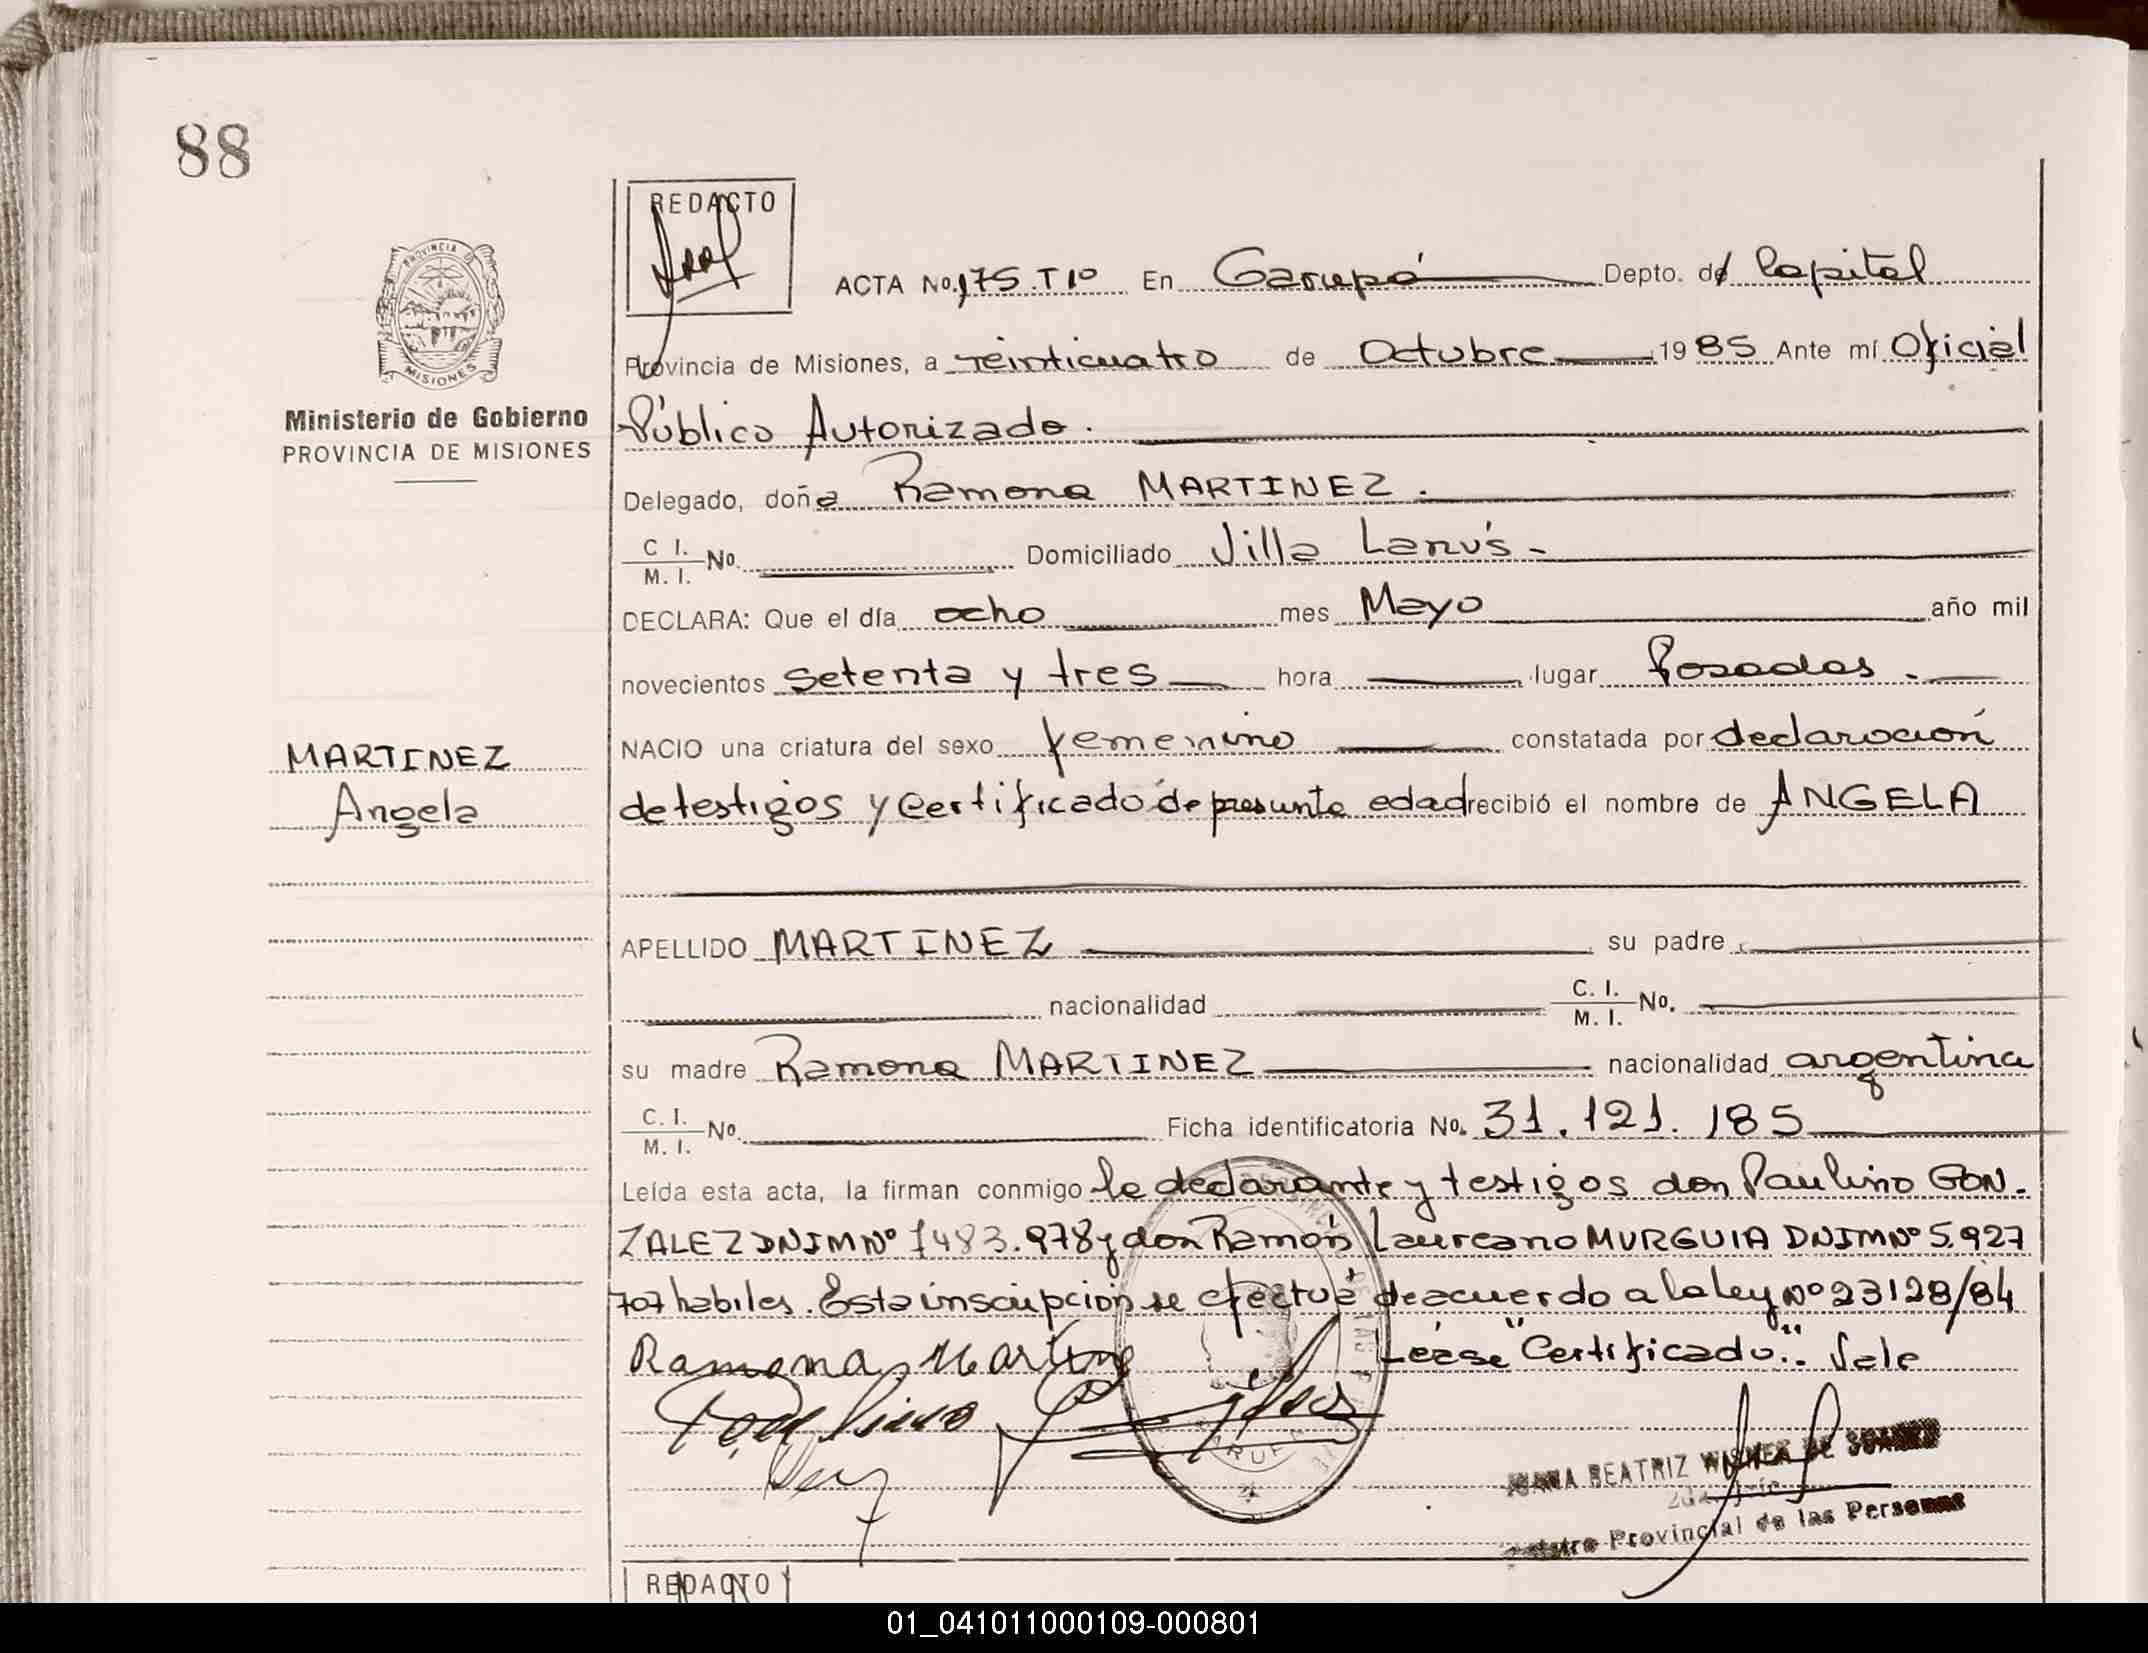 88
REDACTO
ACTA No. 175. T1º En Garupá Depto. de Capital
PROVINCIA DE
MISIONES
Provincia de Misiones, a veinticuatro de Octubre 1985 Ante mí Oficial
Ministerio de Gobierno
PROVINCIA DE MISIONES
Público Autorizado.
Delegado, doña Ramona MARTINEZ.
C I. / M. I. No. Domiciliado Villa Lanús-
DECLARA: Que el día ocho mes Mayo año mil
novecientos setenta y tres hora lugar Posadas.
NACIO una criatura del sexo femenino constatada por declaración
MARTINEZ
Angela
de testigos y Certificado de presunta edad recibió el nombre de ANGELA
APELLIDO MARTINEZ su padre
nacionalidad C. I. / M. I. No.
su madre Ramona MARTINEZ nacionalidad argentina
C. I. / M. I. No. Ficha identificatoria No. 31.121.185
Leída esta acta, la firman conmigo la declarante y testigos don Paulino GON-
ZALEZ DNIMNº 1483.978 y don Ramón Laureano MURGUIA DNIMNº 5.927
707 habiles. Esta inscripción se efectuó de acuerdo a la ley Nº 23128/84
Ramona Martinez Léase "Certificado". Vale
Paulino
JUANA BEATRIZ DE
Provincial de las Personas
REDACTO
01_041011000109-000801